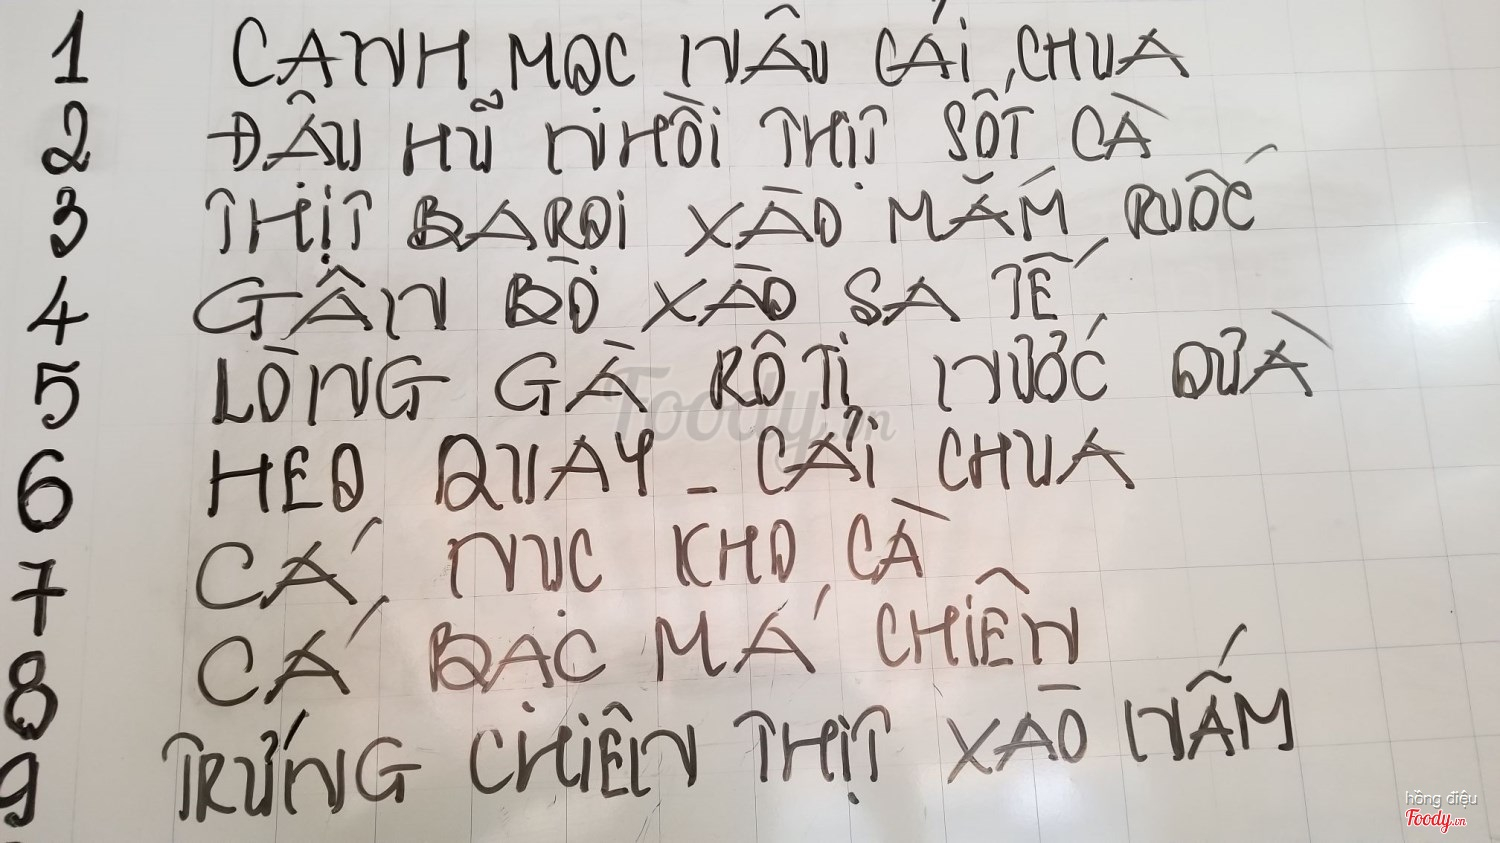 1 CANH MỌC NẤU CẢI CHUA
2 ĐẬU HŨ NHỒI THỊT SỐT CÀ
3 THỊT BA RỌI XÀO MẮM RUỐC
4 GÂN BÒ XÀO SA TẾ
5 LÒNG GÀ RÔ TI NƯỚC DỪA
6 HEO QUAY - CẢI CHUA
7 CÁ NỤC KHO CÀ
8 CÁ BẠC MÁ CHIÊN
9 TRỨNG CHIÊN THỊT XÀO NẤM
Foody.vn
hồng điệu
Foody.vn